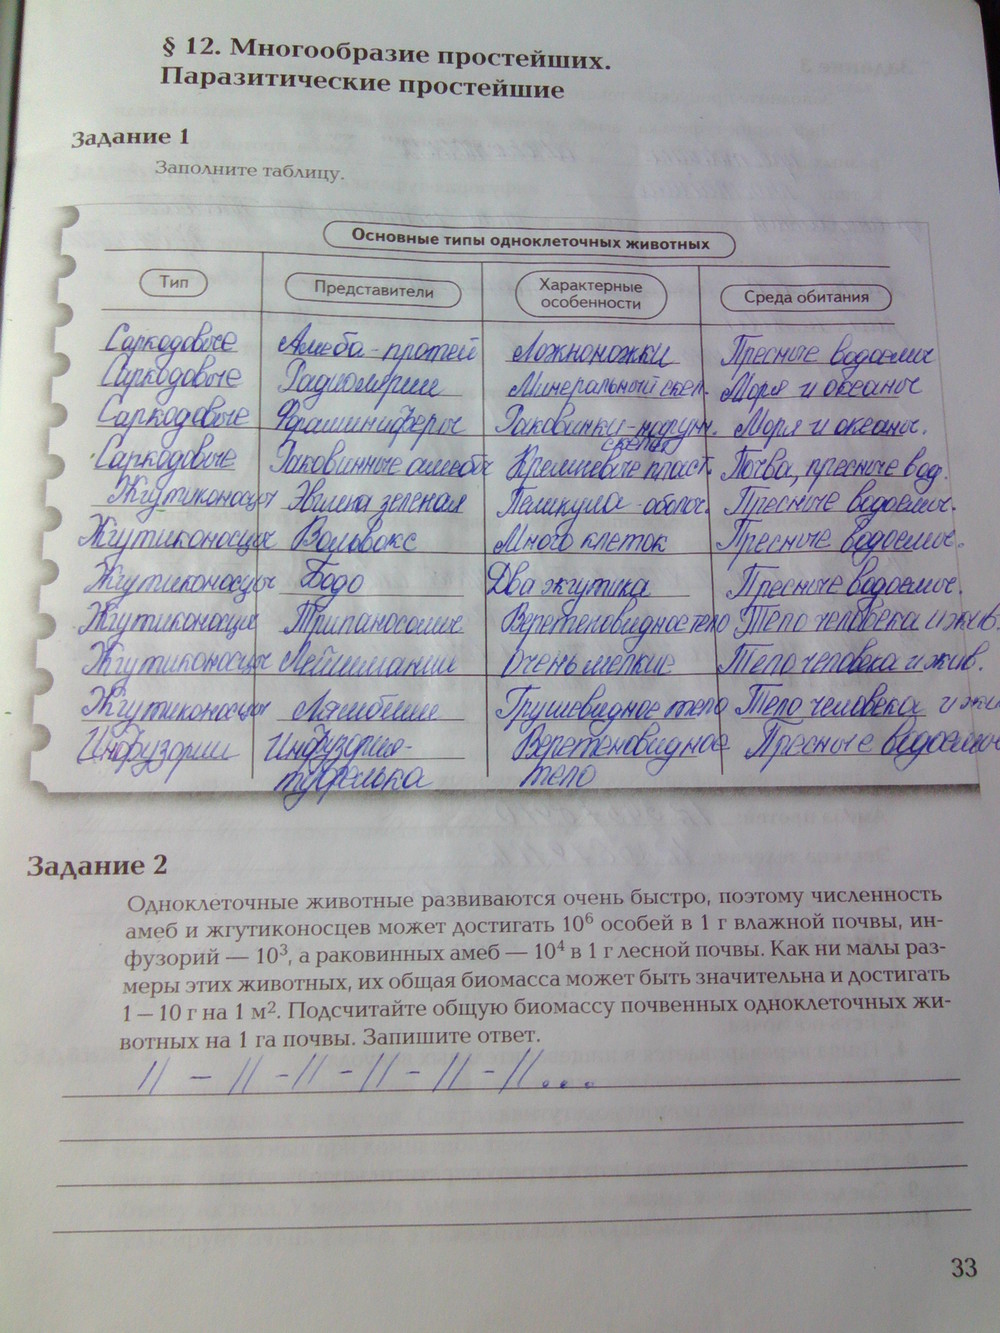 § 12. Многообразие простейших.
Паразитические простейшие
Задание 1
Заполните таблицу.
Основные типы одноклеточных животных
Тип Представители Характерные особенности Среда обитания
Саркодовые Амеба-протей Ложноножки Пресные водоемы
Саркодовые Радиолярии Минеральный скел. Моря и океаны
Саркодовые Фораминиферы Раковинки-наружн. скелет Моря и океаны.
Саркодовые Раковинные амебы Кремниевые пласт. Почва, пресные вод.
Жгутиконосцы Эвглена зеленая Пелликула-оболоч. Пресные водоемы.
Жгутиконосцы Вольвокс Много клеток Пресные водоемы.
Жгутиконосцы Бодо Два жгутика Пресные водоемы.
Жгутиконосцы Трипаносомы Веретеновидное тело Тело человека и жив.
Жгутиконосцы Лейшмании Очень мелкие Тело человека и жив.
Жгутиконосцы Лямблии Грушевидное тело Тело человека и жи
Инфузории Инфузория- Веретеновидное Пресные водоемы
туфелька тело
Задание 2
Одноклеточные животные развиваются очень быстро, поэтому численность
амеб и жгутиконосцев может достигать 10⁶ особей в 1 г влажной почвы, ин-
фузорий — 10³, а раковинных амеб — 10⁴ в 1 г лесной почвы. Как ни малы раз-
меры этих животных, их общая биомасса может быть значительна и достигать
1 — 10 г на 1 м². Подсчитайте общую биомассу почвенных одноклеточных жи-
вотных на 1 га почвы. Запишите ответ.
// – // - // - // - // - //...
33